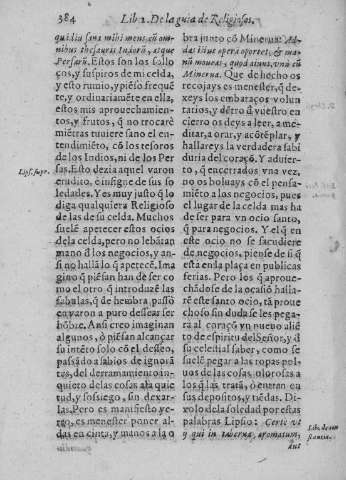 384 Lib 2. De la guia de Religiosos,
qui diu sana mihi mens, cũ om-
nibus thesauris Indorũ, atque
Persarũ. Estos son los sollo
ços, y suspiros de mi celda,
y esto rumio, y piẽso freque
te, y ordinariamẽte en ella,
estos mis aprouechamien-
tos, y frutos, q̃ no trocarè
miẽtras tuuiere sano el en-
tendimiẽto, cõ los tesoros
de los Indios, ni de los Per
sas. Esto dezia aquel varon
erudito, e insigne de sus so
ledades. Y es muy justo q̃ lo
diga qualquiera Religioso
de las de su celda. Muchos
suelẽ apetecer estos ocios
de la celda, pero no lebãtan
mano d̃ los negocios, y an-
si no hallã lo q̃ apetecẽ. Ima
gino q̃ piẽsan han de ser co
mo el otro, q̃ introduzẽ las
fabulas, q̃ de hembra, passò
en varon a puro dessear ser
hõbre. Ansi creo imaginan
algunos, ò piẽsan alcançar
su intẽto solo cõ el desseo,
passãdo a sabios de ignorã
tes, del derramamiento in-
quieto de las cosas a la quie
tud, y sossiego, sin dexar-
las. Pero es manifiesto ye-
rro, es menester poner al-
das en cinta, y manos a la o
bra junto cõ Minerua: Ad-
das istius opera oportet, & ma
nũ moueas, quod aiunt, vnà cũ
Minerua. Que de hecho os
recojays es menester, q̃ de-
xeys los embaraços volun
tarios, y dẽtro d̃ vuestro en
cierro os deys a leer, a me-
ditar, a orar, y acõtẽplar, y
hallareys la verdadera sabi
duria del coraçõ. Y aduier-
to, q̃ encerrados vna vez,
no os boluays cõ el pensa-
miẽto a los negocios, pues
el lugar de la celda mas ha
de ser para vn ocio santo,
q̃ para negocios. Y el q̃ en
este ocio no se sacudiere
de negocios, piense de si q̃
esta en la plaça en publicas
ferias. Pero los q̃ aproue-
chãdose de la ocasiõ halla-
rẽ este santo ocio, tã proue
choso sin duda se les pega-
ra al coraçõ vn nueuo aliẽ
to de espiritu del Señor, y d̃
su celestial saber, como se
suele pegar a las ropas pol
uos de las cosas olorosas a
los q̃ las tratã, ò entran en
sus depositos, y tiẽdas. Di-
xolo de la soledad por estas
palabras Lipsio: Certè vt
y qui in taberna, aromatum,
Lips. supr.
Lib. de con
stantia.
diu